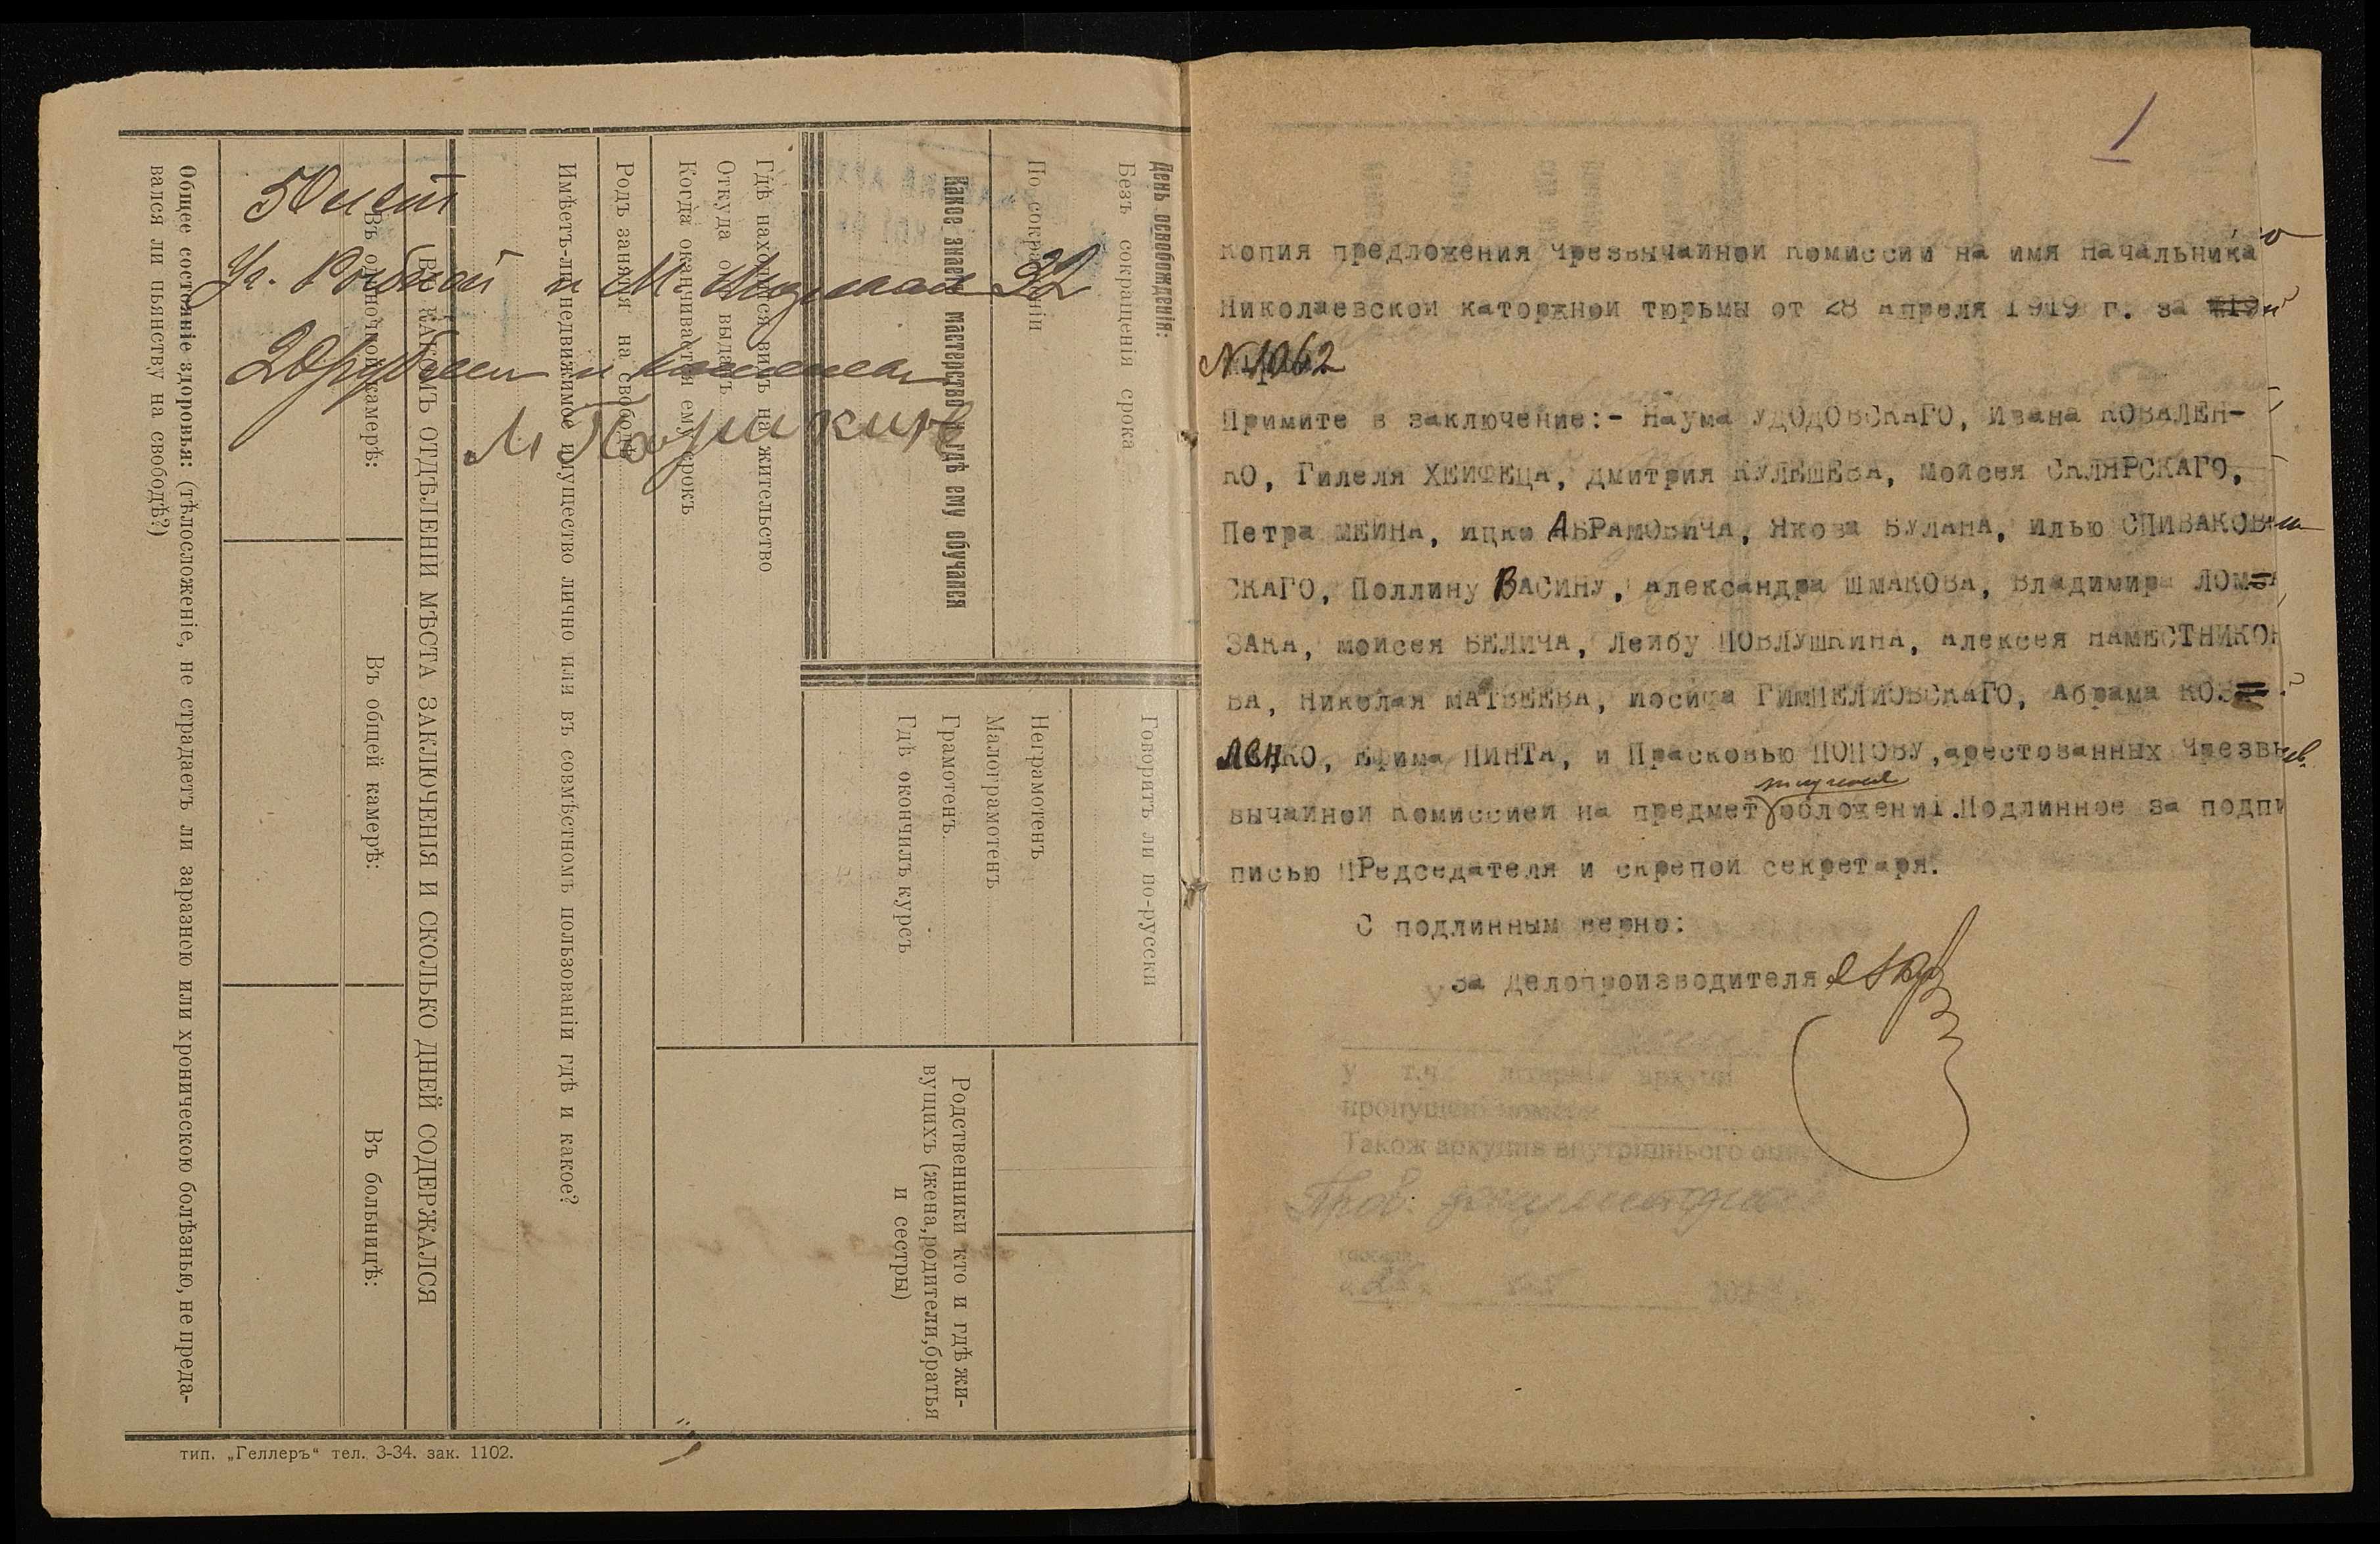 День освобожденія:
Безъ сокращенія срока
По сокращеніи
Какое знаетъ мастерство и гдѣ ему обучался
Гдѣ находится видъ на жительство
Откуда онъ выданъ
Когда оканчивается ему срокъ
Родъ занятія на свободѣ
Говоритъ ли по-русски
Неграмотенъ
Малограмотенъ
Грамотенъ
Гдѣ окончилъ курсъ
Родственники кто и гдѣ жи-
вущихъ (жена,родители,братья
и сестры)
Имѣетъ-ли недвижимое имущество лично или въ совмѣстномъ пользованіи гдѣ и какое?
ВЪ КАКОМЪ ОТДѢЛЕНІИ МѢСТА ЗАКЛЮЧЕНІЯ И СКОЛЬКО ДНЕЙ СОДЕРЖАЛСЯ
Въ одиночной камерѣ:
Въ общей камерѣ:
Въ больницѣ:
Общее состояніе здоровья: (тѣлосложеніе, не страдаетъ ли заразною или хроническою болѣзнью, не преда-
вался ли пьянству на свободѣ?)
50 лет
32
20 рублей
тип. „Геллеръ" тел. 3-34. зак. 1102.
1
Копия предложения Чрезвычайной Комиссии на имя Начальника
Николаевской каторжной тюрьмы от 28 Апреля 1919 г. за
N 1062
Примите в заключение:- Наума УДОДОВСКАГО, Ивана КОВАЛЕН-
КО, Гилеля ХЕЙФЕЦА, Дмитрия КУЛЕШЕВА, Мойсея СКЛЯРСКАГО,
Петра МЕЙНА, Ицко АБРАМОВИЧА, Якова БУЛАНА, Илью СПИВАКОВ
СКАГО, Поллину ВАСИНУ, Александра ШМАКОВА, Владимира ЛОМ-
ЗАКА, Мойсея БЕЛИЧА, Лейбу ПОВЛУШКИНА, Алексея НАМЕСТНИКО
ВА, Николая МАТВЕЕВА, Иосифа ГИМПЕЛИОВСКАГО, Абрама КОВ
ЛЕНКО, Ефима ПИНТА, и Прасковью ПОПОВУ,арестованных Чрезвы
вычайной Комиссией на предмет обложений.Подлинное за подпи
писью ПРедседателя и скрепой секретаря.
С подлинным верно:
За Делопроизводителя